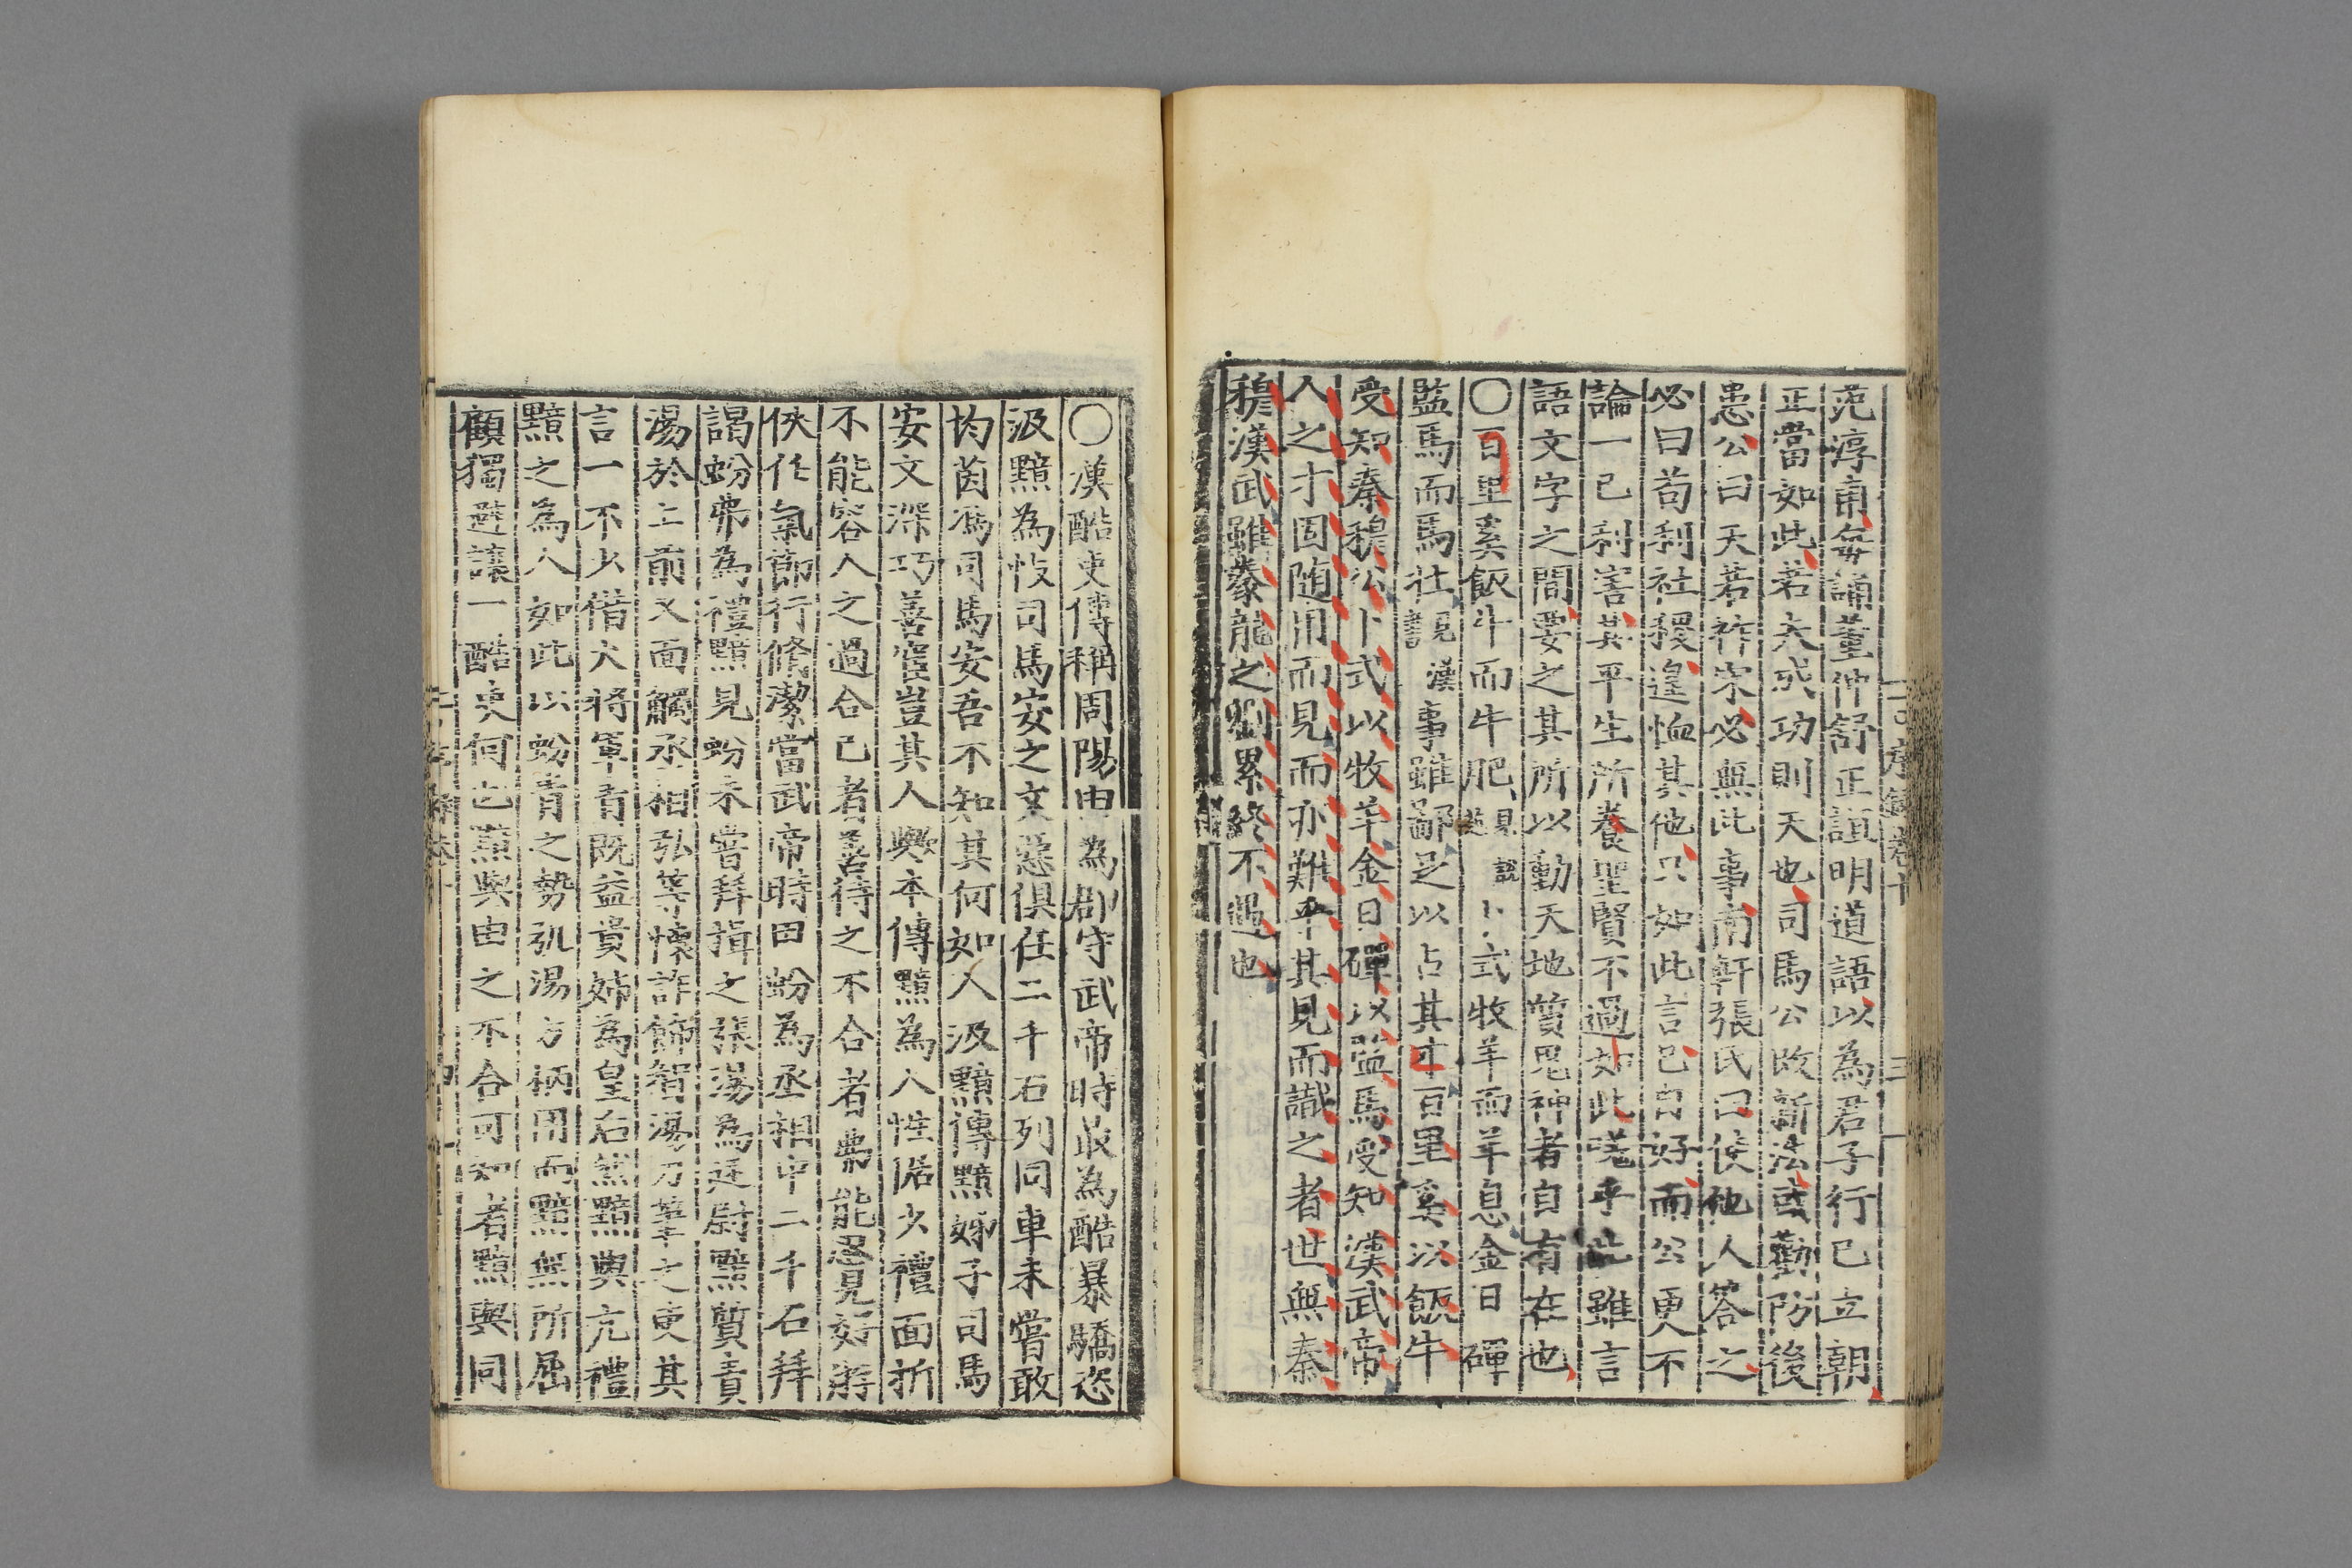 范淳甫每誦董仲舒正誼明道語以為君子行己立朝
正當如此若夫成功則天也司馬公改新法或勸防後
患公曰天若祚宋必無此事南軒張氏曰使他人答之
必曰苟利社稷遑恤其他只如此言已自好而公更不
論一己利害其平生所養聖賢不過如此嗟乎此雖言
語文字之間要之其所以動天地質鬼神者自有在也
○百里奚飯牛而牛肥見說 卜式牧羊而羊息金日磾
監馬而馬壮說漢事雖鄙足以占其才百里奚以飯牛
受知秦穆公卜式以牧羊金日磾以監馬受知漢武帝
人之才固随用而見而亦難乎其見而識之者世無秦
穆漢武雖豢龍之劉累終不遇也
○漢酷吏傳稱周陽由為郡守武帝時㝡為酷暴驕恣
汲黯為忮司馬安之文惡俱任二千石列同車未嘗敢
均茵馮司馬安吾不知其何如人汲黯傳黯姊子司馬
安文深巧善宦豈其人歟本傳黯為人性倨少禮面折
不能容人之過合己者善待之不合者弗能忍見好游
俠任氣節行脩潔當武帝時田蚡為丞相中二千石拜
謁蚡弗為禮黯見蚡未嘗拜揖之張湯為廷尉黯質責
湯於上前又面觸丞相弘等懷詐飾智湯刀筆之吏其
言一不少借大將軍青既益貴姊為皇后然黯與亢禮
黯之為人如此以蚡青之勢弘湯方柄用而黯無所屈
顧獨避讓一酷吏何也蓋與由之不合可知者黯與同